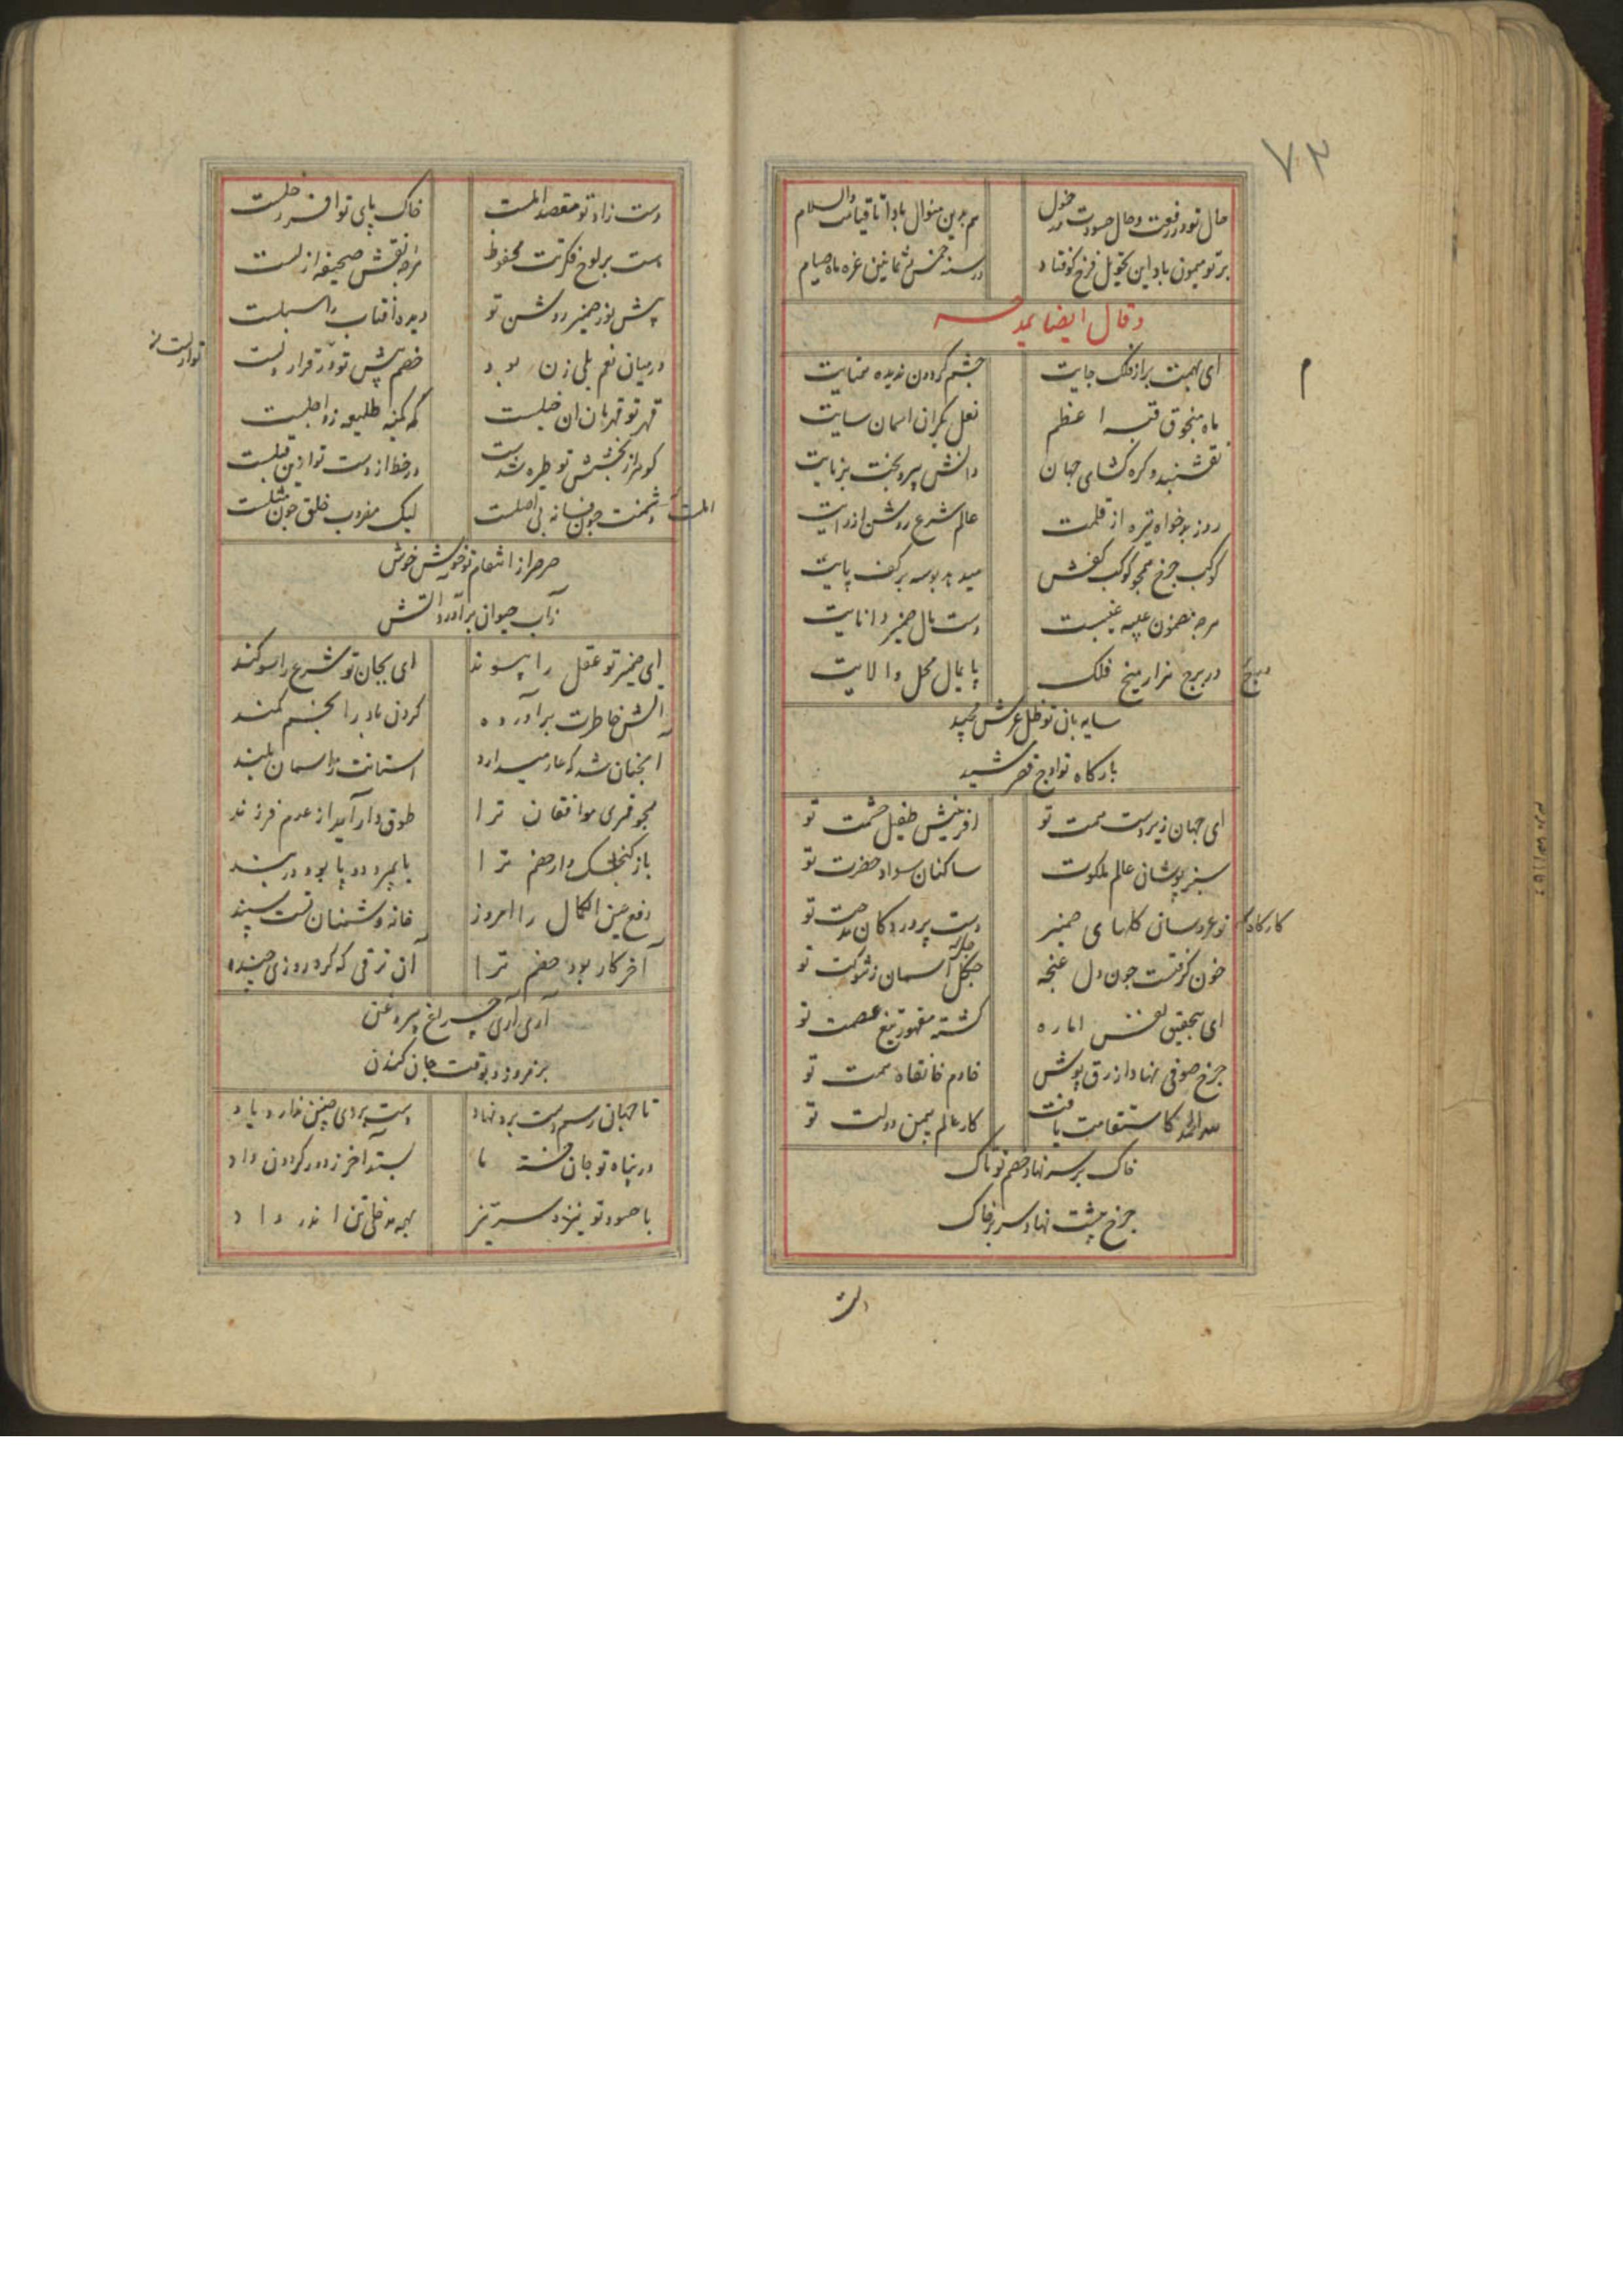 ۷۳
حال تو در رفعت و حال حسودت در خمول
هم برین منوال بادا تا قیامت والسلام
بر تو میمون باد این تحویل فرخ کوفتاد
در سنه خمس ثمانین غره ماه صیام
وقال ایضا یمدحه
ای بهمت بر از فلک جایت
چشم کردون ندیده همتایت
م
ماه منجوق قبه اعظم
نعل یکران اسمان سایت
نقشبند و کره کشای جهان
دانش پیر و بخت برنایت
روز بدخواه تیره از قلمت
عالم شرع روشن از رایت
کوکب چرخ همچو کوکب کفش
میدهد بوسه بر کف پایت
هرچه مضمون عیبه غیبست
دست مال ضمیر دانایت
در برج هزار میخ فلک
پایمال محل والایت
سایه بان تو ظل عرش مجید
بارکاه تو اوج قصر مشید
ای جهان زیر دست همت تو
افرینش طفیل حشمت تو
سبز پوشان عالم ملکوت
ساکنان سواد حضرت تو
نوعروسان کلهای ضمیر
دست پرورد کان مدحت تو
کارکاه
خون کرفتست جون دل غنجه
آسمان ز شوکت تو
ای بتحقیق نفس اماره
کشته مقهور تیغ عصمت تو
جرخ صوفی نهاد ازرق پوش
خادم خانقاه همت تو
لله الحمد کاستقامت یافت
کار عالم بیمن دولت تو
خاک بر سر نهاد خصم تو پاک
جرخ پشت نهاد سر بر خاک
دست
دست زاد تو مقصد املست
خاک پای تو افسر زحلست
هست بر لوح فکرتت محفوظ
هرچه نقش صحیفه ازلست
پیش نور ضمیر روشن تو
دیده افتاب را سبلست
در میان نعم بلی زن بود
خصم پیش تو در قرار
قهر تو قهرمان ان خیلست
که کمینه طلیعه زو اجلست
کوهر از بخشش تو طیره شدست
در خط از دست تو ازین قبلست
دشمنت جون فسانه بی اصلست
لیک مضروب خلق جون مثلست
صرصر از انتقام تو خویش خوش
زآب حیوان برآورد آتش
ای ضمیر تو عقل را پیوند
ای بجان تو شرع را سوکند
آتش خاطرت برآورده
کردن باد را بخم کمند
انجنان شد که عار میدارد
استانت ز اسمان بلند
همجو قمری موافقان ترا
طوق دار آید از عدم فرزند
باز کنجشک وار خصم ترا
دفع عین الکمال را امروز
خانه دشمنان تست سپند
آخر کار بود خصم ترا
آن ترقی که کرد روزی چند
آری آری چراغ بی روغن
برفروزد بوقت جان کندن
تا جهان رسم دست برد نهاد
دست بردی چنین ندارد یاد
در پناه تو جان خسته ما
بستد آخر ز دور کردون داد
با حسود تو نیز در سر تیز